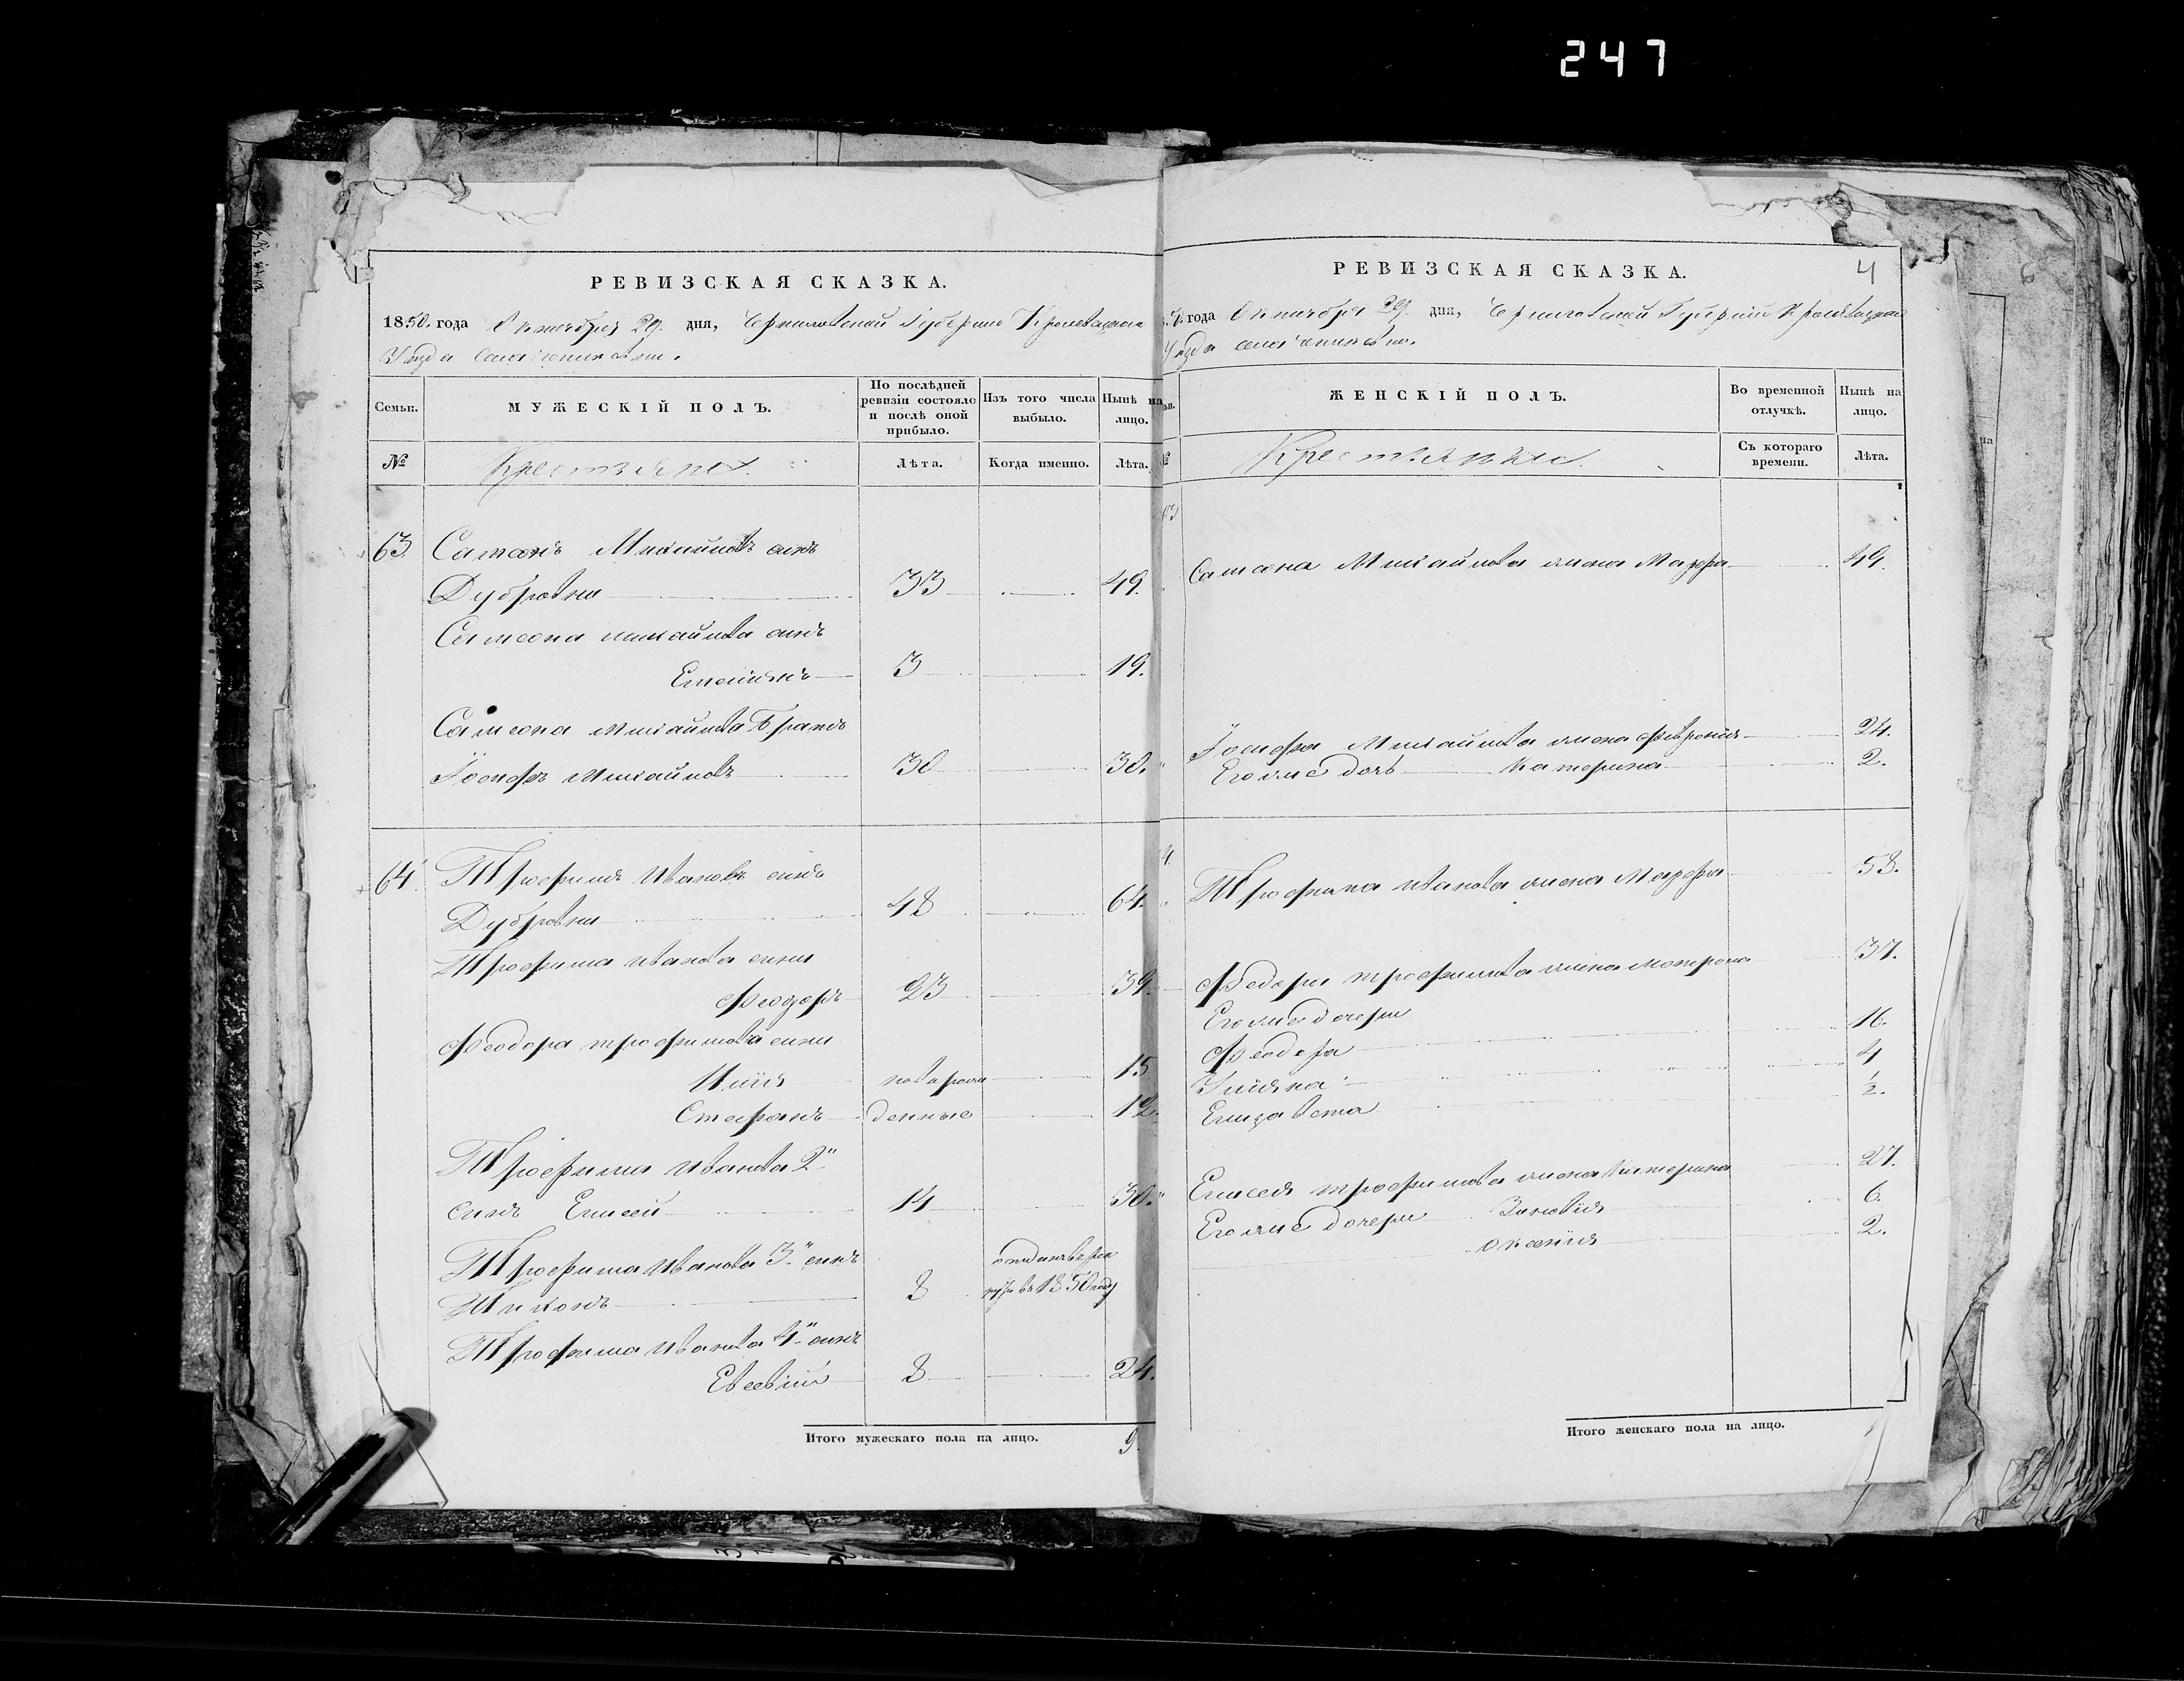 247
РЕВИЗСКАЯ СКАЗКА.
1850. года Октября 29. дня, Черниговской Губернии Кролевецкаго
Уезда
Семьи.
МУЖЕСКІЙ ПОЛЪ.
По послѣдней ревизіи состояло и послѣ оной прибыло.
Изъ того числа выбыло.
Нынѣ на лицо.
№
Крестьяне.
Лѣта.
Когда именно.
Лѣта.
63 Самсонъ Михайловъ сынъ
Дубровка 33 49.
Самсона михайлова сынъ
Емелиянъ 3 19.
Самсона михайлова Братъ
Іосифъ Михайловъ 30 30.
64. Трофимъ Ивановъ сынъ
Дубровка 48 64.
Трофима иванова сыны
Феодоръ 23 39.
Феодора трофимова сыны
Илия новорож 15
Стефанъ денные 12.
Трофима иванова 2й
сынъ Елисей 14 30.
Трофима Иванова 3й сынъ
Тихонъ 8 отданъ въ рек руты въ 1850 году
Трофима Иванова 4й сынъ
Евсевий 8 24.
Итого мужескаго пола на лицо. 9.
РЕВИЗСКАЯ СКАЗКА.
4
года Октября 29. дня, Черниговской Губернии Кролевецкаго
Уезда
ЖЕНСКІЙ ПОЛЪ.
Во временной отлучкѣ.
Нынѣ на лицо.
№
Крестьянки.
Съ котораго времени.
Лѣта.
Самсона Михайлова жена Марфа 49.
Іосифа Михайлова жена феврония 24.
Его же дочь Катерина 2.
Трофима иванова жена Марфа 58.
Федора трофимова жена мотрона 37.
Его же дочери
Феодора 16.
Улияна 4
Елизавета ½.
Елисея трофимова жена Катерина 27.
Его же дочери Зиновия 6.
оксения 2.
Итого женскаго пола на лицо.